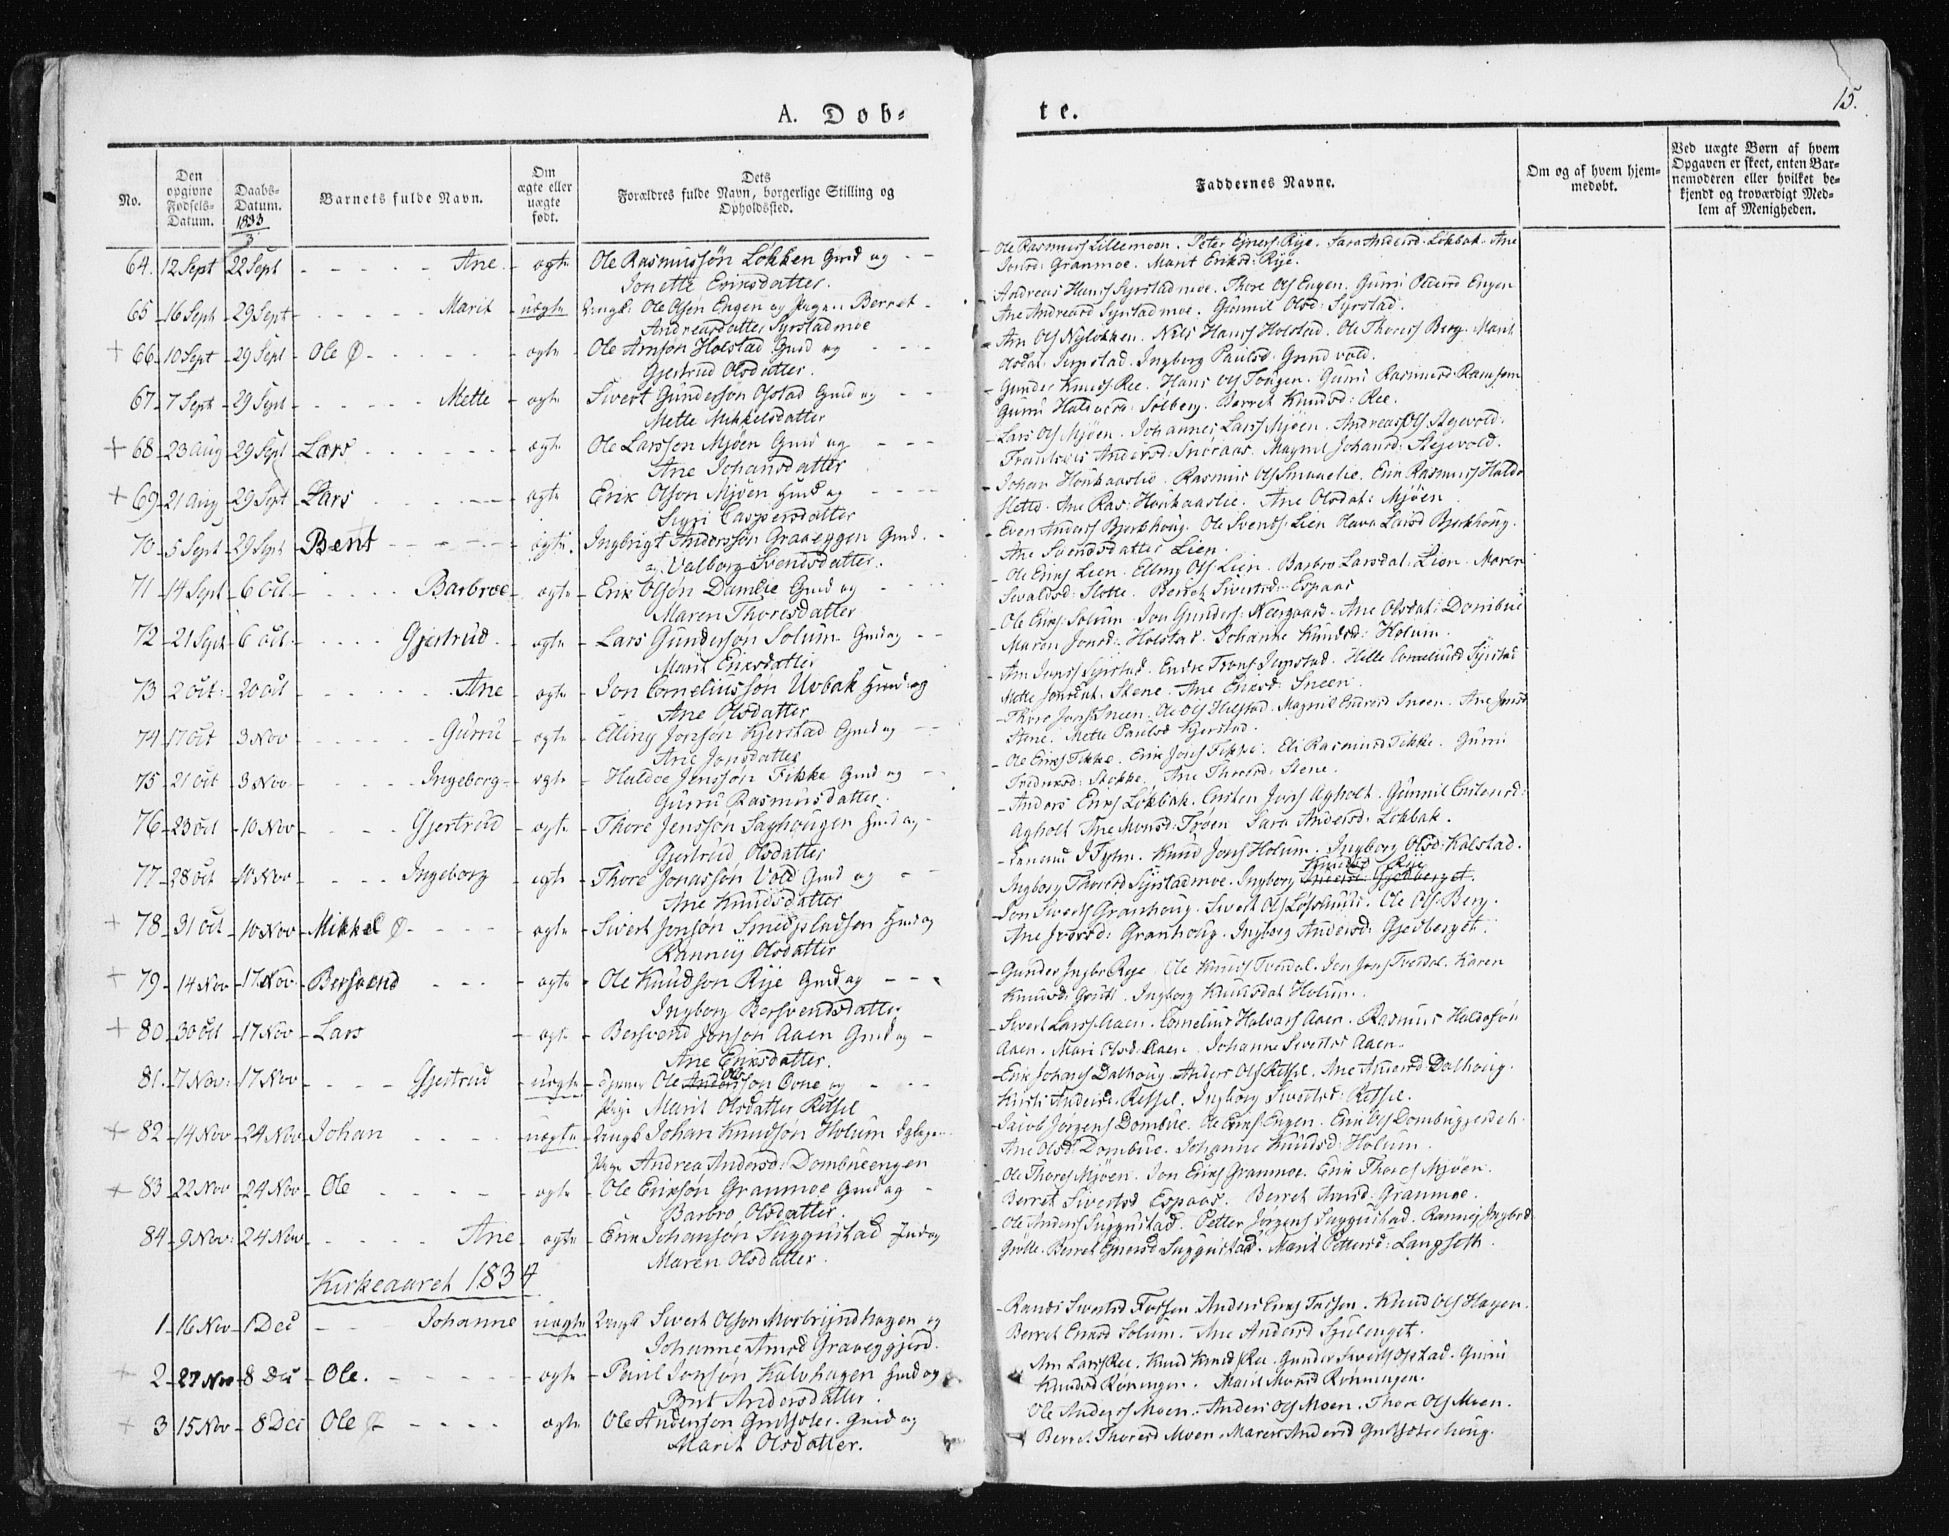 15.
A. Døb-
te.
No.
Den opgivne Fødsels-Datum.
Daabs-Datum.
1833
3
Barnets fulde Navn.
Om ægte eller uægte født.
Dets
Forældres fulde Navn, borgerlige Stilling og
Opholdssted.
Faddernes Navne.
Om og af hvem hjem-
medøbt.
Ved uægte Børn af hvem
Opgaven er skeet, enten Bar-
nemoderen eller hvilket be-
kjendt og troværdigt Med-
lem af Menigheden.
64. 12 Sept 22 Sept Ane ægte Ole Rasmussøn Løkken Gmd og
Jonette Eriksdatter.
Ole Rasmuss Lillemoen. Peter Ejners Rije. Sara Andersd Løkbak. Ane
Jonsd: Granmoe. Marit Eriksd: Rije.
65 16 Sept 29 Sept Marit uægte Ungk: Ole Olsøn Engen og Pige Berret
Andreasdatter Syrstadmoe
Andreas Hans Syrstadmoe. Thore Ols Engen. Gurri Engen
Ane Andreasd Syrstadmoe. Gunnil Olsd: Syrstad.
+ 66 10 Sept 29 Sept Ole Ø ægte Ole Arnsøn Holstad Gmd og
Gjertrud Olsdatter.
Arn Ols Nyløkken. Niels Hans Holstad. Ole Thores Berg. Marit
Olsdat: Jerpstad. Ingborg Paulsd: Grindvold.
67 7 Sept 29 Sept Mette ægte Sivert Gundersøn Ofstad Gmd og
Mette Mikkelsdatter
Gunder Knuds Ree. Hans Ols Tongen. Gurri Rasmusd Ramsem
Gurri Haldosd: Solberg. Berret Knudsd: Ree.
+ 68 23 Aug 29 Sept Lars ægte Ole Larssen Mjøen Gmd og
Ane Johansdatter
Lars Ols Mjøen. Johannes Lars Mjøen. Andreas Ols Stejevold.
Andersd: Sneraas. Magnil Johansd: Stejevold.
+ 69 21 Aug 29 Sept Lars ægte Erik Olsøn Mjøen Hmd og
Sigri Caspersdatter
Johan Houkaaslie. Rasmus Ols Erik Rasmus
Slette. Ane Ras: Houkaaslie. Ane Olsdat: Mjøen
70 5 Sept 29 Sept Bent ægte Ingbrigt Anderssøn Graveggen Gmd.
og Valborg Svendsdatter.
Even Anders Bjerkhoug. Ole Svends: Lien Hava Larsd Bjerkhoug.
Ane Svendsdatter Lien.
71 14 Sept 6 Oct Barbroe ægte Erik Olsøn Damlie Gmd og
Maren Thoresdatter
Ole Eriks Lien. Elling Ols Lien. Barbro Larsdat. Lien. Maren
Sivaldsd: Slette. Berret Sivertsd: Espaas
72 21 Sept 6 Oct Gjertrud ægte Lars Gundersøn Solum Gmd og
Marit Eriksdatter
Ole Eriks: Solum. Jon Gunders: Neergaard. Ane Olsdat: Dombue
Maren Jonsd: Holstad. Johanne Knudsd: Holum.
73 2 Oct 20 Oct Ane ægte Jon Corneliussøn Uvbak Hmd og
Ane Olsdatter
Arn Jons Syrstad. Endre Trons Jerpstad. Helle Corneliusd Syrstad
Mette Jonsdat. Stene. Ane Eriksd: Sneen.
74 17 Oct 3 Nov Gurru ægte Elling Jonsøn Kjerstad Gmd og
Ane Jonsdatter
Thore Jons Sneen. Ole Ols Holstad. Magnil Endresd Sneen. Ane Jonsd
Stene. Mette Paulsd Kjerstad.
75 21 Oct 3 Nov Ingeborg ægte Haldoe Jonssøn Fikke Gmd og
Gurru Rasmusdatter.
Ole Eriks Fikke. Erik Jons Fikke. Eli Rasmusd Fikke. Gurri
Frederiksd: Stokke. Ane Thoresd: Stene.
76 23 Oct 10 Nov Gjertrud ægte Thore Jenssøn Saghougen Hmd og
Gjertrud Olsdatter
Anders Eriks Løkbak. Cristen Jons Agholt. Gunnil Cristensd:
Agholt Ane Monsd: Trøen Sara Andersd: Løkbak.
77 28 Oct 10 Nov Ingeborg ægte Thore Jonassøn Vold Gmd og
Ane Knudsdatter
Knud Jons Holum. Ingborg Olsd: Holstad.
Knudsd Rije
Ingborg Thoresd Syrstadmoe. Ingborg Gjedberget.
+ 78 31 Oct 10 Nov Mikkel Ø ægte Sivert Jonsøn Smedspladsen Hmd og
Ranney Olsdatter
Jon Siverts Granhoug. Sivert Ols Ole Ols Berg.
Ane Iversd: Granhoug. Ingborg Andersd: Gjedberget.
+ 79 14 Nov 17 Nov Bersvend ægte Ole Knudsøn Rije Gmd og
Ingborg Bersvendsdatter
Gunder Ingbr Rije. Ole Knuds Tverdal. Jon Jons Tverdal. Karen
Knudsd: Grutt. Ingborg Knudsdat Holum.
+ 80 30 Oct 17 Nov Lars ægte Bersvend Jonsøn Aaen Gmd og
Ane Eriksdatter.
Sivert Lars Aaen. Cornelius Halvars Aaen. Rasmus Haldosøn
Aaen. Mari Olsd: Aaen. Johanne Sivertsd Aaen.
81. 7 Nov: 17 Nov Gjertrud uægte Ole Anderssøn Ovne og
Ols
Pige Marit Olsdatter Ritsel
Erik Johans Dalhoug. Anders Ols Ritsel. Ane Andersd Dalhoug.
Kirsti Andersd: Ritsel. Ingborg Sivertsd: Ritsel.
+ 82 14 Nov 24 Nov Johan uægte Ungk Johan Knudsøn Holum
Pige Andrea Andersd: Dombueengen
Jacob Jørgens Dombue. Ole Eriks: Engen. Erik Ols Dombuggjerdet.
Ane Olsd: Dombue. Johanne Knudsd: Holum.
+ 83 22 Nov 24 Nov Ole ægte Ole Eriksøn Granmoe Gmd og
Barbro Olsdatter.
Ole Thores Mjøen. Jon Eriks Granmoe. Erik Thores Mjøen.
Berret Sivertsd Espaas. Berret Arnsd: Granmoe.
84 9 Nov: 24 Nov Ane ægte Erik Johansøn Suggustad Indog
Maren Olsdatter.
Ole Anders Suggustad. Petter Jørgens Suggustad. Ranney Ingbrd
Grøtte. Berret Ejnersd Suggustad. Marit Pettersd: Langseth.
Kirkeaaret 1834
1 16 Nov 1 Dec Johanne uægte Ungk Sivert Olsøn Morbryndhagen og
Johanne Arnsd Graveggjerd.
Randi Sivertsd Fossen Anders Eriks Fossen. Knud Ols Hagen.
Berret Eriksd Solum. Ane Andersd
+ 2 27 Nov 8 Dec Ole. ægte Poul Jonsøn Kalvhagen Hmd og
Brit Andersdatter.
Arn Lars Ree. Knud Knuds Ree. Gunder Siverts Ofstad. Gurri
Knudsd Rønningen. Marit Monsd Rønningen.
+ 3 15 Nov 8 Dec Ole Ø ægte Ole Andersøn Gmd og
Marit Olsdatter.
Ole Anders Moen. Anders Ols Moen. Thore Ols Moen.
Berret Thoresd Moen. Maren Andersd